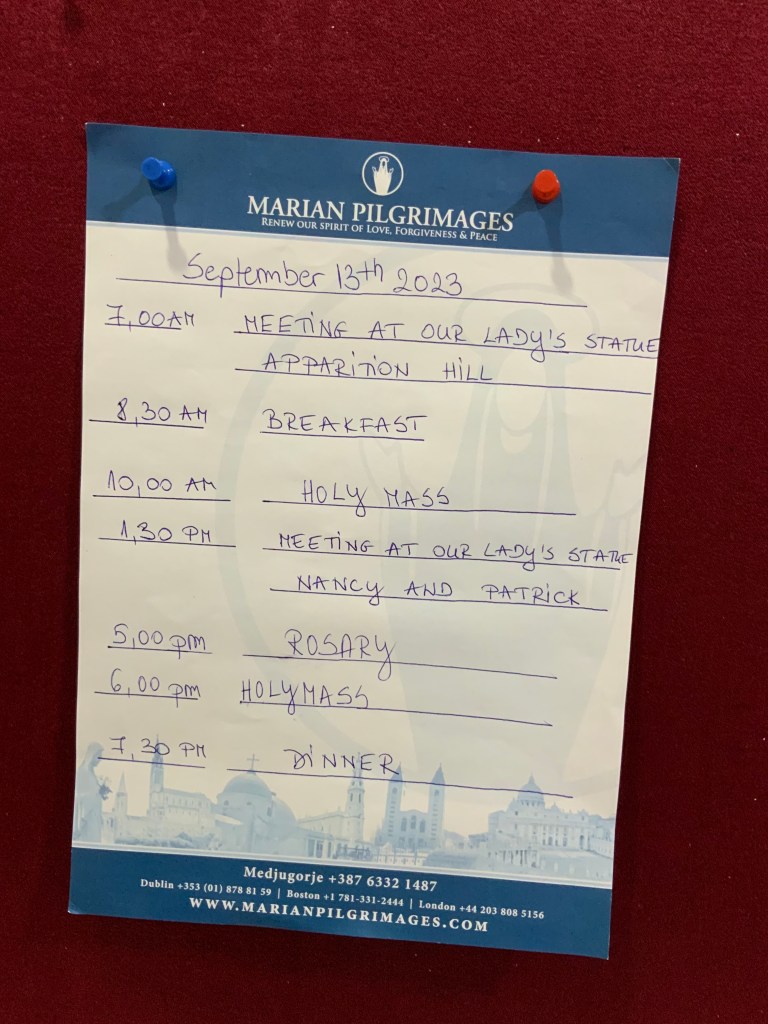 MARIAN PILGRIMAGES
RENEW OUR SPIRIT OF LOVE, FORGIVENESS & PEACE
September 13th 2023
7,00AM MEETING AT OUR LADY'S STATUE
APPARITION HILL
8,30 AM BREAKFAST
10,00 AM HOLY MASS
1,30 PM MEETING AT OUR LADY'S STATUE
NANCY AND PATRICK
5,00 pm ROSARY
6,00 pm HOLY MASS
7,30 PM DINNER
Medjugorje +387 6332 1487
Dublin +353 (01) 878 81 59 | Boston +1 781-331-2444 | London +44 203 808 5156
WWW.MARIANPILGRIMAGES.COM